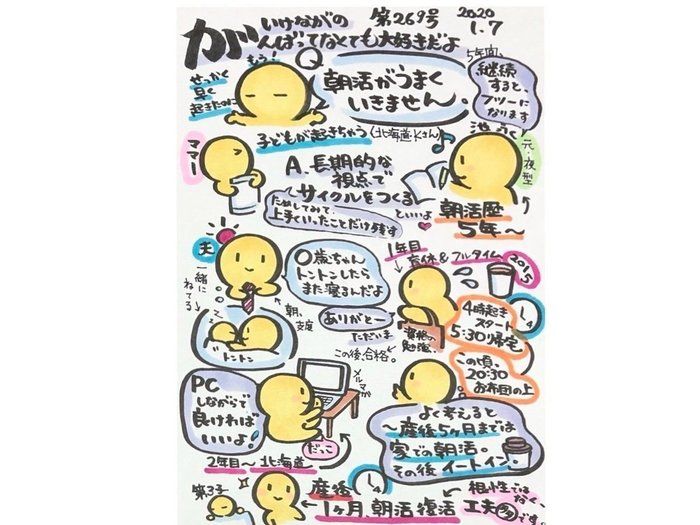 いけながの
がんばってなくても大好きだよ
第269号
2020
1.7
せっかく
早く
起きたのに
もう!
Q
朝活がうまく
いきません。
5年間、
継続
すると、
フツーに
なります
子どもが起きちゃう(北海道・Kさん)
池
元・夜型
ママー
A.長期的な
視点で
サイクルをつくる
といいよ
ためしてみて、
上手くいったことだけ残す
朝活歴
5年〜
夫
一緒に
ねてる
〇歳ちゃん
トントンしたら
また寝るんだよ
朝、
支度
ありがとー
ただいま
トントン
この後、合格。
1年目
育休&フルタイム
2015
資格の
勉強、
4時起き
スタート
5:30帰宅
この頃、
20:30
お布団の上
PC
しながらで
良ければ
いいよ!
メルマガ
だっこ
2年目〜北海道
よく考えると
〜産後5ヶ月までは
家での朝活。
その後イートイン。
第3子
産後
1ヶ月朝活復活
根性ではなく、
工夫多です。